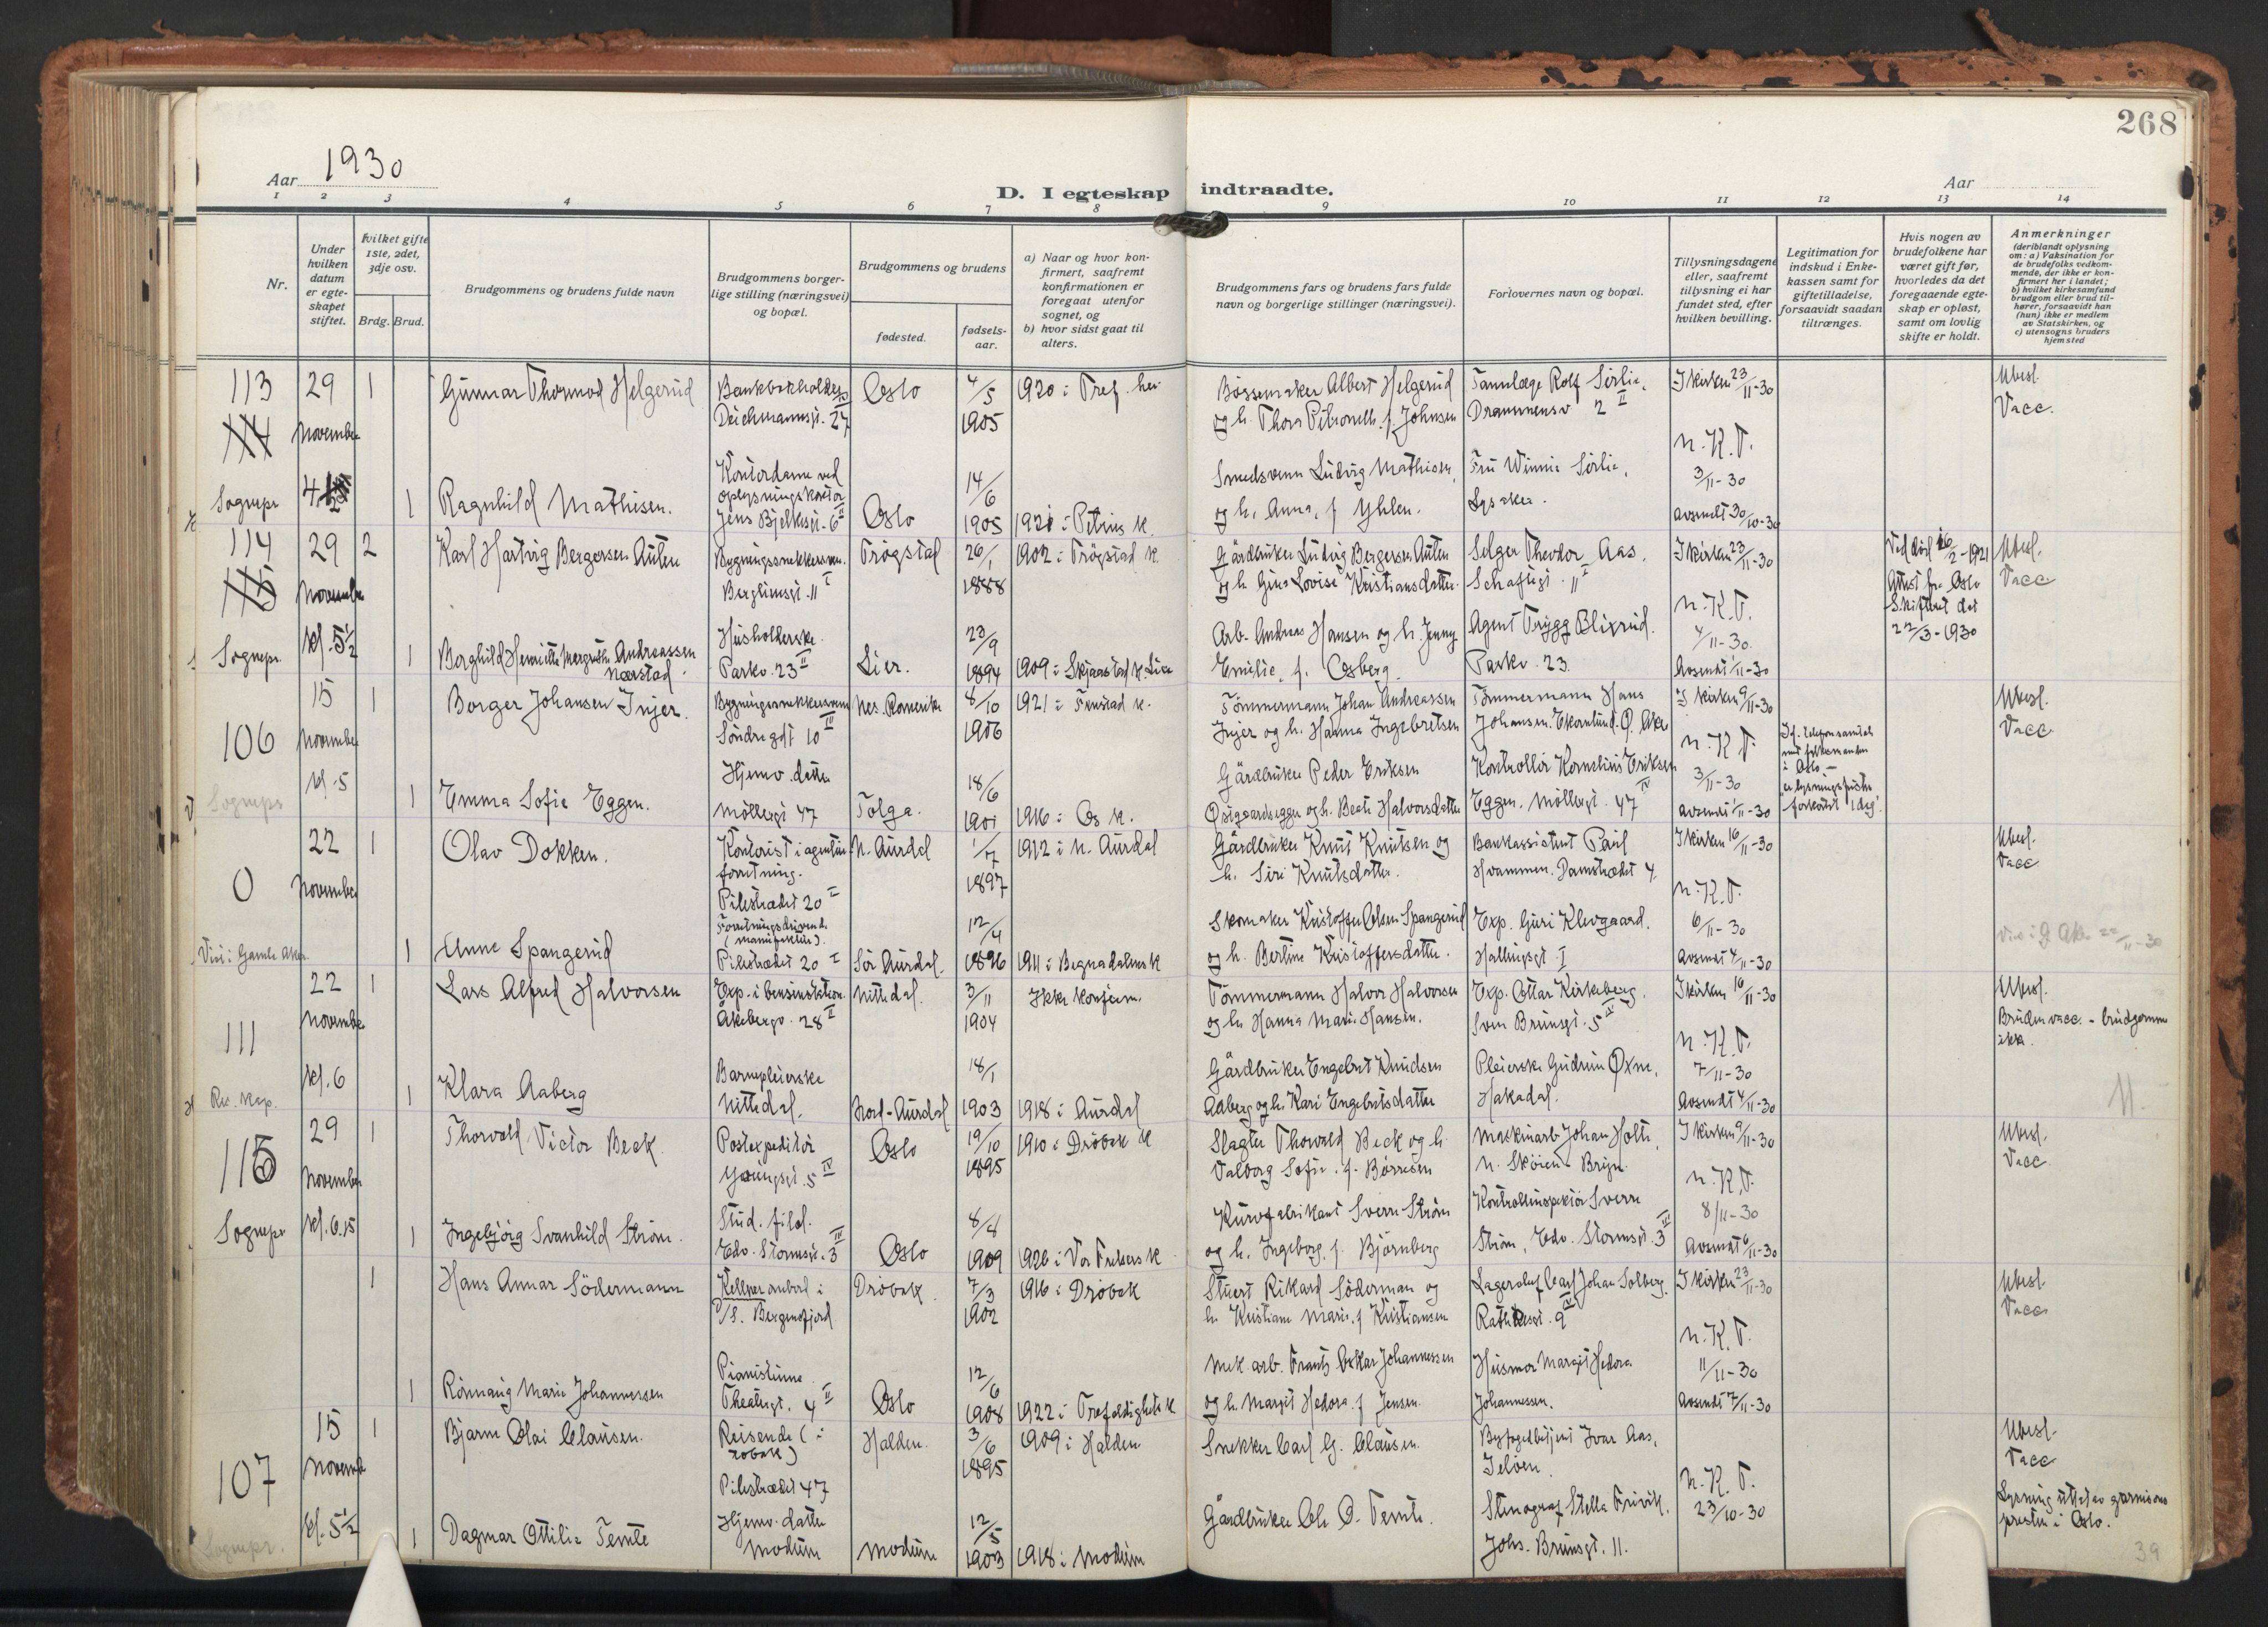 268
Aar 1930
D. I egteskap indtraadte.
Aar
1 2 3 4 5 6 7 8 9 10 11 12 13 14
Nr.
Under hvilken datum er egte-skapet stiftet.
hvilket gifte 1ste, 2det, 3dje osv.
Brdg. Brud.
Brudgommens og brudens fulde navn
Brudgommens borger-lige stilling (næringsvei) og bopæl.
Brudgommens og brudens
fødested.
fødsels-aar.
a) Naar og hvor kon-firmert, saafremt konfirmationen er foregaat utenfor sognet, og
b) hvor sidst gaat til alters.
Brudgommens fars og brudens fars fulde navn og borgerlige stillinger (næringsvei).
Forlovernes navn og bopæl.
Tillysningsdagene eller, saafremt tillysning ei har fundet sted, efter hvilken bevilling.
Legitimation for indskud i Enke-kassen samt for giftetilladelse, forsaavidt saadan tiltrænges.
Hvis nogen av brudefolkene har været gift før, hvorledes da det foregaaende egte-skap er opløst, samt om lovlig skifte er holdt.
Anmerkninger
(deriblandt oplysning om: a) Vaksination for de brudefolks vedkom-mende, der ikke er kon-firmert her i landet;
b) hvilket kirkesamfund brudgom eller brud til-hører, forsaavidt han (hun) ikke er medlem av Statskirken, og
c) utensogns bruders hjemsted
113 29 1 Gunnar Thormod Helgerud Bankbokholder Oslo 4/5 1920 i Tref. her Bøssemaker Albert Helgerud Tannlæge Rolf Sørlie, I kirken 23/11-30 Ubesl.
November Deichmannsgt. 27 1905 og h. Thora Petronelle f. Johnsen Drammensv. 2 II Vacc.
n. K. T.
Kontordame ved 14/6 Smedsvenn Ludvig Mathisen, Fru Winnie Sørlie, 3/11-30
Sognepr. 1 Ragnhild Mathisen. oplysningskontor Jens Bjelkesgt. 6 II Oslo 1905 1921 i Petrus k. og h. Anna, f. Yhlen. Lysaker. avsendt 30/10-30
114 29 2 Karl Hartvig Bergersen Auten Bygningssnekkersven. Trøgstad 26/1 1902 i Trøgstad k. Gårdbruker Ludvig Bergersen Auten Selger Theodor Aas. I kirken 23/11-30 Ved død 26/2-1921 Ubesl.
November Bergliensgt. 11 I 1888 og h. Gina Lovise Kristiansdatter Schaftsgt. 11 I Attest fra Oslo Vacc
n. K. T. Skifteret dat
Husholderske 23/9 Arb. Andreas Hansen og h. Jenny Agent Trygg Blixrud. 4/11-30. 22/3-1930
Sognepr. kl. 5½ 1 Borghild Henriette Margrethe Andreassen Nærstad Parkv. 23 II Lier. 1894 1909 i Skjaastad k. Lier Emilie, f. Osberg. Parkv. 23. Avsendt 1/11-30
15 1 Borger Johansen Injer. Bygningssnekkersvenn Nes. Romerike 8/10 1921 i Fenstad k. Tømmermann Johan Andreassen Tømmermann Hans I kirken 9/11-30 Ubesl.
106 November Søndregt 10 III 1906 Injer og h. Hanna Ingebretsen Johansen. Ekornlund. Ø. Aker n. K. T. Vacc
kl. 5 Hjemv. datter 18/6 Gårdbruker Peder Eriksen Kontrollør Kornelius Eriksen 3/11-30 i Oslo —
Sognepr 1 Emma Sofie Eggen. Møllergt 47 Tolga. 1901 1916 i Os k. og h. Berit Halvorsdatter Eggen. Møllergt. 47 IV avsendt 1/11-30 forkortet 1 dag.
22 1 Olav Dokken. Kontorist i agentur- N. Aurdal 1/7 1912 i N. Aurdal Gårdbruker Knut Knutsen og Bankassistent Paul I kirken 16/11-30 Ubesl.
0 November forretning. Pilestrædet 20 II 1897 h. Siri Knutsdatter. Hvammen. Damstrædet 4. n. K. T. Vacc
Forretningsdrivende (manufaktur). 12/4 Skomaker Kristoffer Olsen Spangerud Exp. Guri Klevgaard. 6/11-30
Viet i Gamle Aker 1 Anne Spangerud Pilestrædet 20 I Sør Aurdal. 1896 1911 i Begnadalens k og h. Bertine Kristoffersdatter. Hallingsgt. I Avsendt 4/11-30 Viet i G Aker 22/11-30
22 1 Lars Alfred Halvorsen Exp. i bensinstation. Nittedal. 3/11 Ikke konfirm. Tømmermann Halvor Halvorsen Exp. Ottar Kirkeberg. I kirken 16/11-30 Ubesl.
111 November Åkebergv. 28 II 1904 og h. Hanna Marie Hansen. Sven Brunsgt. 5 IV n. K. T. Bruden vacc. - brudgommen ikke.
kl. 6 Barnepleierske 18/1 Gårdbruker Engebret Knudsen Pleierske Gudrun Øxne, 7/11-30
Res. Kap. 1 Klara Aaberg Nittedal. Nord-Aurdal 1903 1918 i Aurdal Aaberg og h. Kari Engebretsdatter Hakadal. Avsendt 4/11-30
115 29 1 Thorvald Victor Beck. Postexpeditør Oslo 19/10 1910 i Drøbak k Slagter Thorvald Beck og h. Maskinarb. Johan Holt, I kirken 9/11-30 Ubesl.
November Youngsgt. 5 IV 1895 Valborg Sofie. f. Børresen N. Skøien. Bryn. n. K. T. Vacc
Stud. filol. 8/8 Kurvfabrikant Sverre Strøm Kontrollinspektør Sverre 8/11-30
Sognepr kl. 6.15 1 Ingebjørg Svanhild Strøm. Edv. Stormsgt. 3 III Oslo 1909 1926 i Vor Frelsers k og h. Ingeborg. f. Bjørnberg Strøm, Edv. Stormsgt. 3 III Avsendt 6/11-30
1 Hans Annar Södermann Kellner ombord i Drøbak. 7/3 1916 i Drøbak Stuert Rikard Söderman og Lagerchef Carl Johan Solberg. I kirken 23/11-30 Ubesl.
D/S. Bergensfjord 1902 h. Kristiane Marie. f Kristiansen Rathkesgt. 9 IV n. K. T. Vacc
Pianistinne. 12/6 Mek. arb. Frantz Oskar Johannessen Husmor Margit Hedora 11/11-30
1 Rønnaug Marie Johannessen Theatergt. 4 II Oslo 1908 1922 i Trefoldighets k og h. Margit Hedora. f Jensen. Johannessen. Avsendt 7/11-30
15 1 Bjarne Olai Clausen. Reisende (i tobak) Halden. 3/6 1909 i Halden Snekker Carl G. Clausen. Byfogedbetjent Ivar Aas, Ubesl.
107 November Pilestrædet 47 1895 Jeløen. n. K. T. Vacc
kl. 5½ Hjemv. datter 12/5 Gårdbruker Ole O. Temte. Stenograf Stella Frivik. 23/10-30 Lysning uttatt av garnisons
Sognepr. 1 Dagmar Ottilie Temte Modum Modum 1903 1918 i Modum Johs. Brunsgt. 11. presten i Oslo.
39